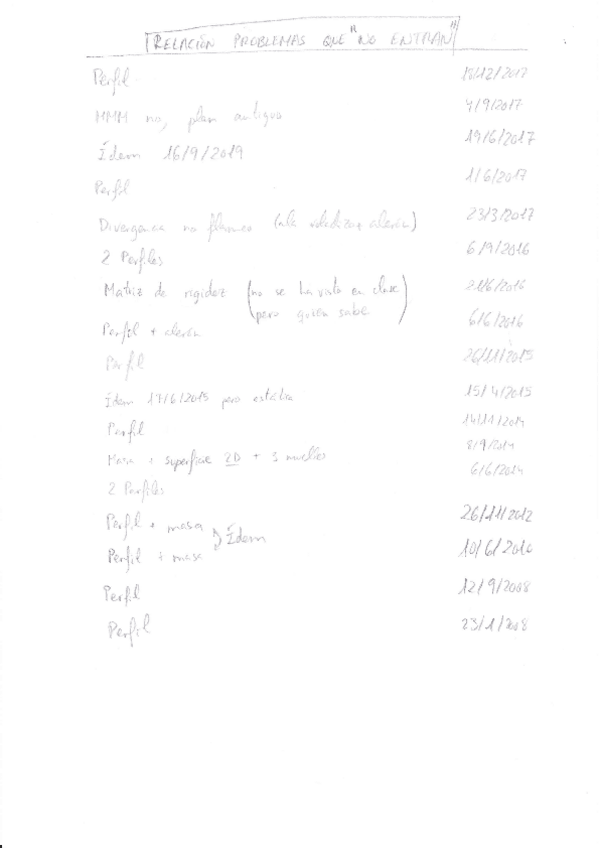 RELACIÓN PROBLEMAS QUE "NO ENTRAN"
Perfil 18/12/2017
MMM no, plan antiguo 4/9/2017
Ídem 16/9/2019 19/6/2017
Perfil 1/6/2017
Divergencia no flameo (ala + alerón) 23/3/2017
2 Perfiles 6/9/2016
Matriz de rigidez (no se ha visto en clase 21/6/2016
pero quién sabe)
Perfil + alerón 6/6/2016
Perfil 26/11/2015
Ídem 17/6/2015 pero estática 15/4/2015
Perfil 14/11/2014
Masa + superficie 2D + 3 muelles 8/9/2014
2 Perfiles 6/6/2014
Perfil + masa 26/11/2012
Ídem
Perfil + masa 10/6/2010
Perfil 12/9/2008
Perfil 23/1/2008